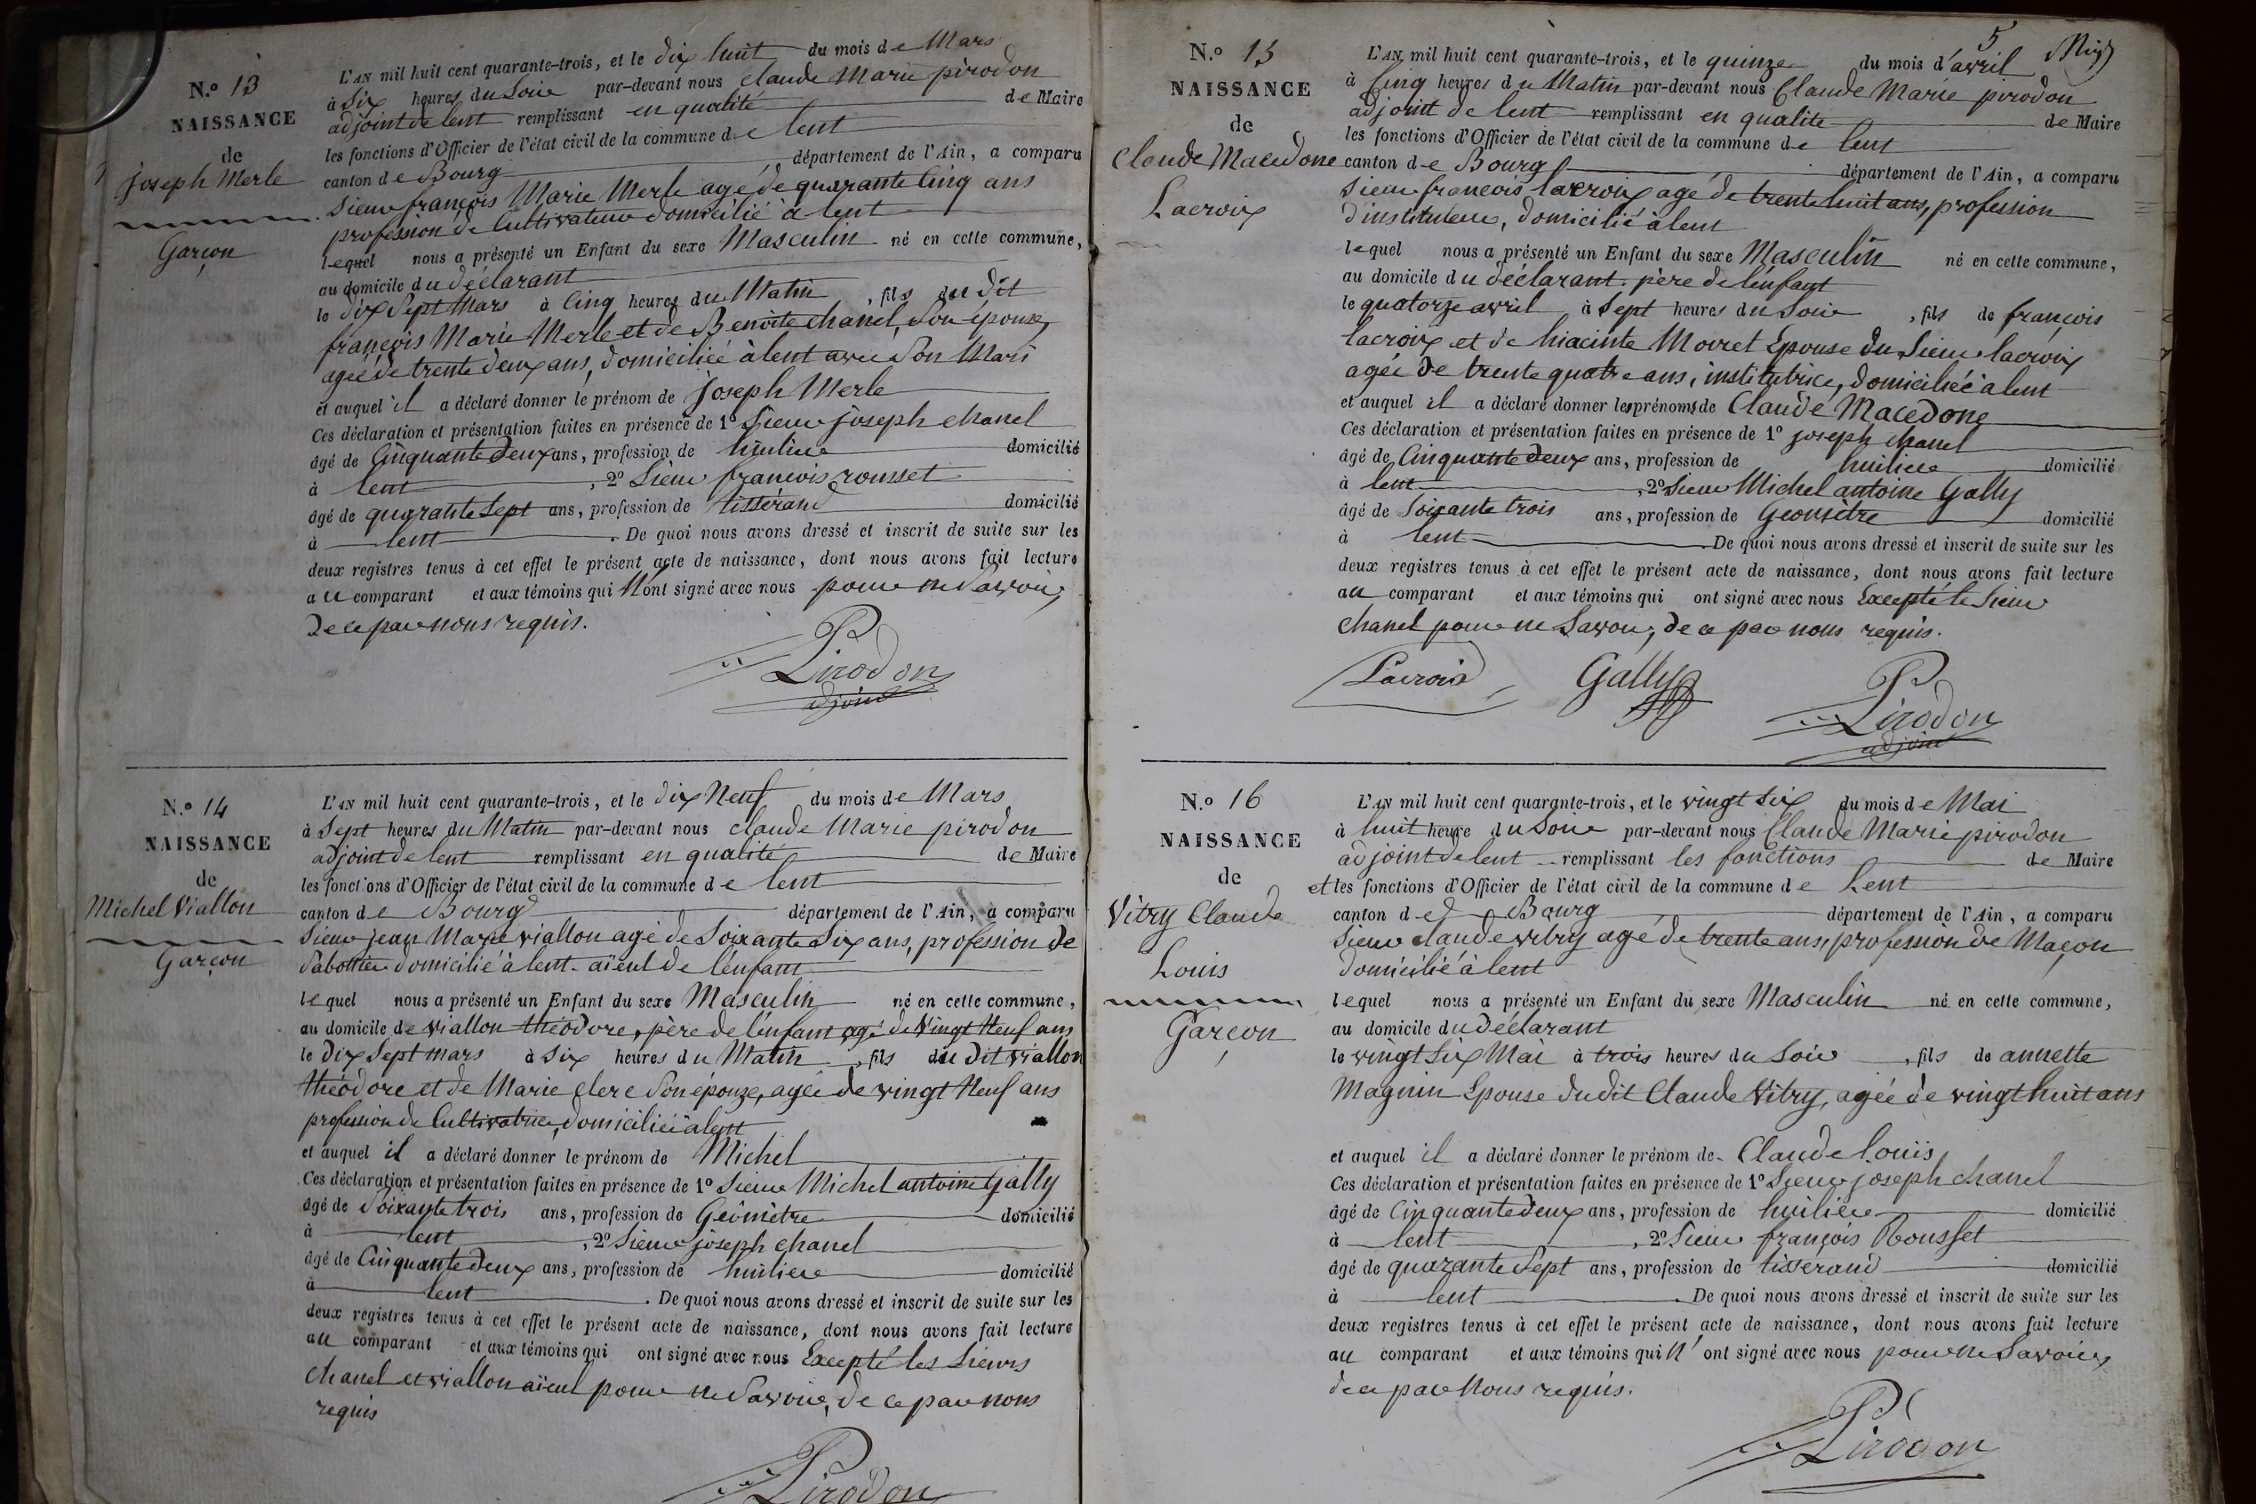 N.º 13
NAISSANCE
de
joseph Merle
Garçon
L'AN mil huit cent quarante-trois, et le dix huit du mois de Mars
à Six heures du Soir par-devant nous Claude Marie pirodon
adjoint de lent remplissant en qualité de Maire
les fonctions d'Officier de l'état civil de la commune de lent
canton de Bourg département de l'Ain, a comparu
Sieur françois Marie Merle agé de quarante Cinq ans
profession de Cultivateur domicilié à lent
lequel nous a présenté un Enfant du sexe Masculin né en cette commune,
au domicile du déclarant
le dix Sept Mars à Cinq heures du Matin, fils du dit
françois Marie Merle et de Benoite chanel, Son épouze,
agée de trente deux ans, domiciliée à lent avec Son Mari
et auquel il a déclaré donner le prénom de joseph Merle
Ces déclaration et présentation faites en présence de 1º Sieur joseph chanel
âgé de Cinquante deux ans, profession de huilier domicilié
à lent, 2º Sieur françois rousset
âgé de quarante Sept ans, profession de tissérand domicilié
à lent. De quoi nous avons dressé et inscrit de suite sur les
deux registres tenus à cet effet le présent acte de naissance, dont nous avons fait lecture
au comparant et aux témoins qui N'ont signé avec nous pour ne Savoir,
de ce par nous requis.
Pirodon
adjoint
N.º 14
NAISSANCE
de
Michel Viallon
Garçon
L'AN mil huit cent quarante-trois, et le dix Neuf du mois de Mars
à Sept heures du Matin par-devant nous claude Marie pirodon
adjoint de lent remplissant en qualité de Maire
les fonctions d'Officier de l'état civil de la commune de lent
canton de Bourg département de l'Ain, a comparu
Sieur jean Marie viallon agé de Soixante Six ans, profession de
Sabottier domicilié à lent. aïeul de l'énfant
lequel nous a présenté un Enfant du sexe Masculin né en cette commune,
au domicile de viallon théodore, père de l'énfant agé de Vingt Neuf ans
le dix Sept mars à Six heures du Matin, fils du dit viallon
théodore et de Marie clere Son épouze, agée de vingt Neuf ans
profession de Cultivatrice, domiciliée à lent
et auquel il a déclaré donner le prénom de Michel
Ces déclaration et présentation faites en présence de 1º Sieur Michel antoine Gally
âgé de Soixante trois ans, profession de Géomètre domicilié
à lent, 2º Sieur joseph chanel
âgé de Cinquante deux ans, profession de huiliere domicilié
à lent. De quoi nous avons dressé et inscrit de suite sur les
deux registres tenus à cet effet le présent acte de naissance, dont nous avons fait lecture
au comparant et aux témoins qui ont signé avec nous Excepté les Sieurs
chanel et viallon aïeul pour ne Savoir, de ce par nous
requis
Pirodon
5
N.º 15
NAISSANCE
de
Claude Macedone
Lacroix
L'AN mil huit cent quarante-trois, et le quinze du mois d'avril
à Cinq heures du Matin par-devant nous Claude Marie pirodon
adjoint de lent remplissant en qualité de Maire
les fonctions d'Officier de l'état civil de la commune de lent
canton de Bourg département de l'Ain, a comparu
Sieur françois lacroix agé de trente huit ans, profession
d'instituteur, domicilié à lent
lequel nous a présenté un Enfant du sexe Masculin né en cette commune,
au domicile du déclarant. père de l'énfant
le quatorze avril à Sept heures du Soir, fils de françois
lacroix et de hiacinte Moiret Epouse du Sieur lacroix
agée de trente quatre ans, institutrice, domiciliée à lent
et auquel il a déclaré donner les prénoms de Claude Macedone
Ces déclaration et présentation faites en présence de 1º joseph chanel
âgé de Cinquante deux ans, profession de huiliere domicilié
à lent, 2º Sieur Michel antoine Gally
âgé de Soixante trois ans, profession de Géomètre domicilié
à lent. De quoi nous avons dressé et inscrit de suite sur les
deux registres tenus à cet effet le présent acte de naissance, dont nous avons fait lecture
au comparant et aux témoins qui ont signé avec nous Excepté le Sieur
chanel pour ne Savoir, de ce par nous requis.
Lacroix Gally Pirodon
adjoint
N.º 16
NAISSANCE
de
Vitry Claude
Louis
Garçon
L'AN mil huit cent quarante-trois, et le vingt Six du mois de Mai
à huit heure du Soir par-devant nous Claude Marie pirodon
adjoint de lent remplissant les fonctions de Maire
et les fonctions d'Officier de l'état civil de la commune de Lent
canton de Bourg département de l'Ain, a comparu
Sieur claude vitry agé de trente ans, profession de Maçon
domicilié à lent
lequel nous a présenté un Enfant du sexe Masculin né en cette commune,
au domicile du déclarant
le vingt Six Mai à trois heures du Soir, fils de annette
Magnin Epouse du dit Claude Vitry, agée de vingt huit ans
et auquel il a déclaré donner le prénom de Claude Louis
Ces déclaration et présentation faites en présence de 1º Sieur joseph chanel
âgé de Cinquante deux ans, profession de huiliere domicilié
à lent, 2º Sieur françois Rousset
âgé de quarante Sept ans, profession de tisserand domicilié
à lent. De quoi nous avons dressé et inscrit de suite sur les
deux registres tenus à cet effet le présent acte de naissance, dont nous avons fait lecture
au comparant et aux témoins qui N'ont signé avec nous pour ne Savoir,
de ce par Nous requis.
Pirodon